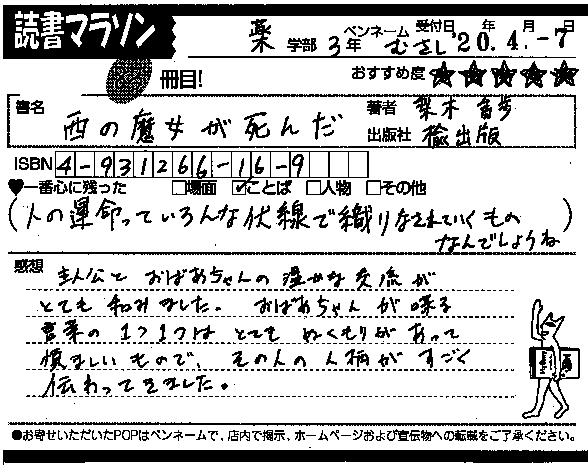 読書マラソン
薬 学部 3年 ペンネーム むさし 受付日 '20年 4月 -7日
冊目!
おすすめ度 ★★★★★
書名 西の魔女が死んだ
著者 梨木香歩
出版社 楡出版
ISBN 4-931266-16-9
♥一番心に残った □場面 ☑ことば □人物 □その他
(人の運命っていろんな伏線で織りなされていくもの
なんでしょうね)
感想 主人公とおばあちゃんの温かな交流が
とても和みました。おばあちゃんが喋る
言葉の1つ1つはとてもぬくもりがあって
慎ましいもので、その人の人柄がすごく
伝わってきました。
●お寄せいただいたPOPはペンネームで、店内で掲示、ホームページおよび宣伝物への転載をご了承ください。